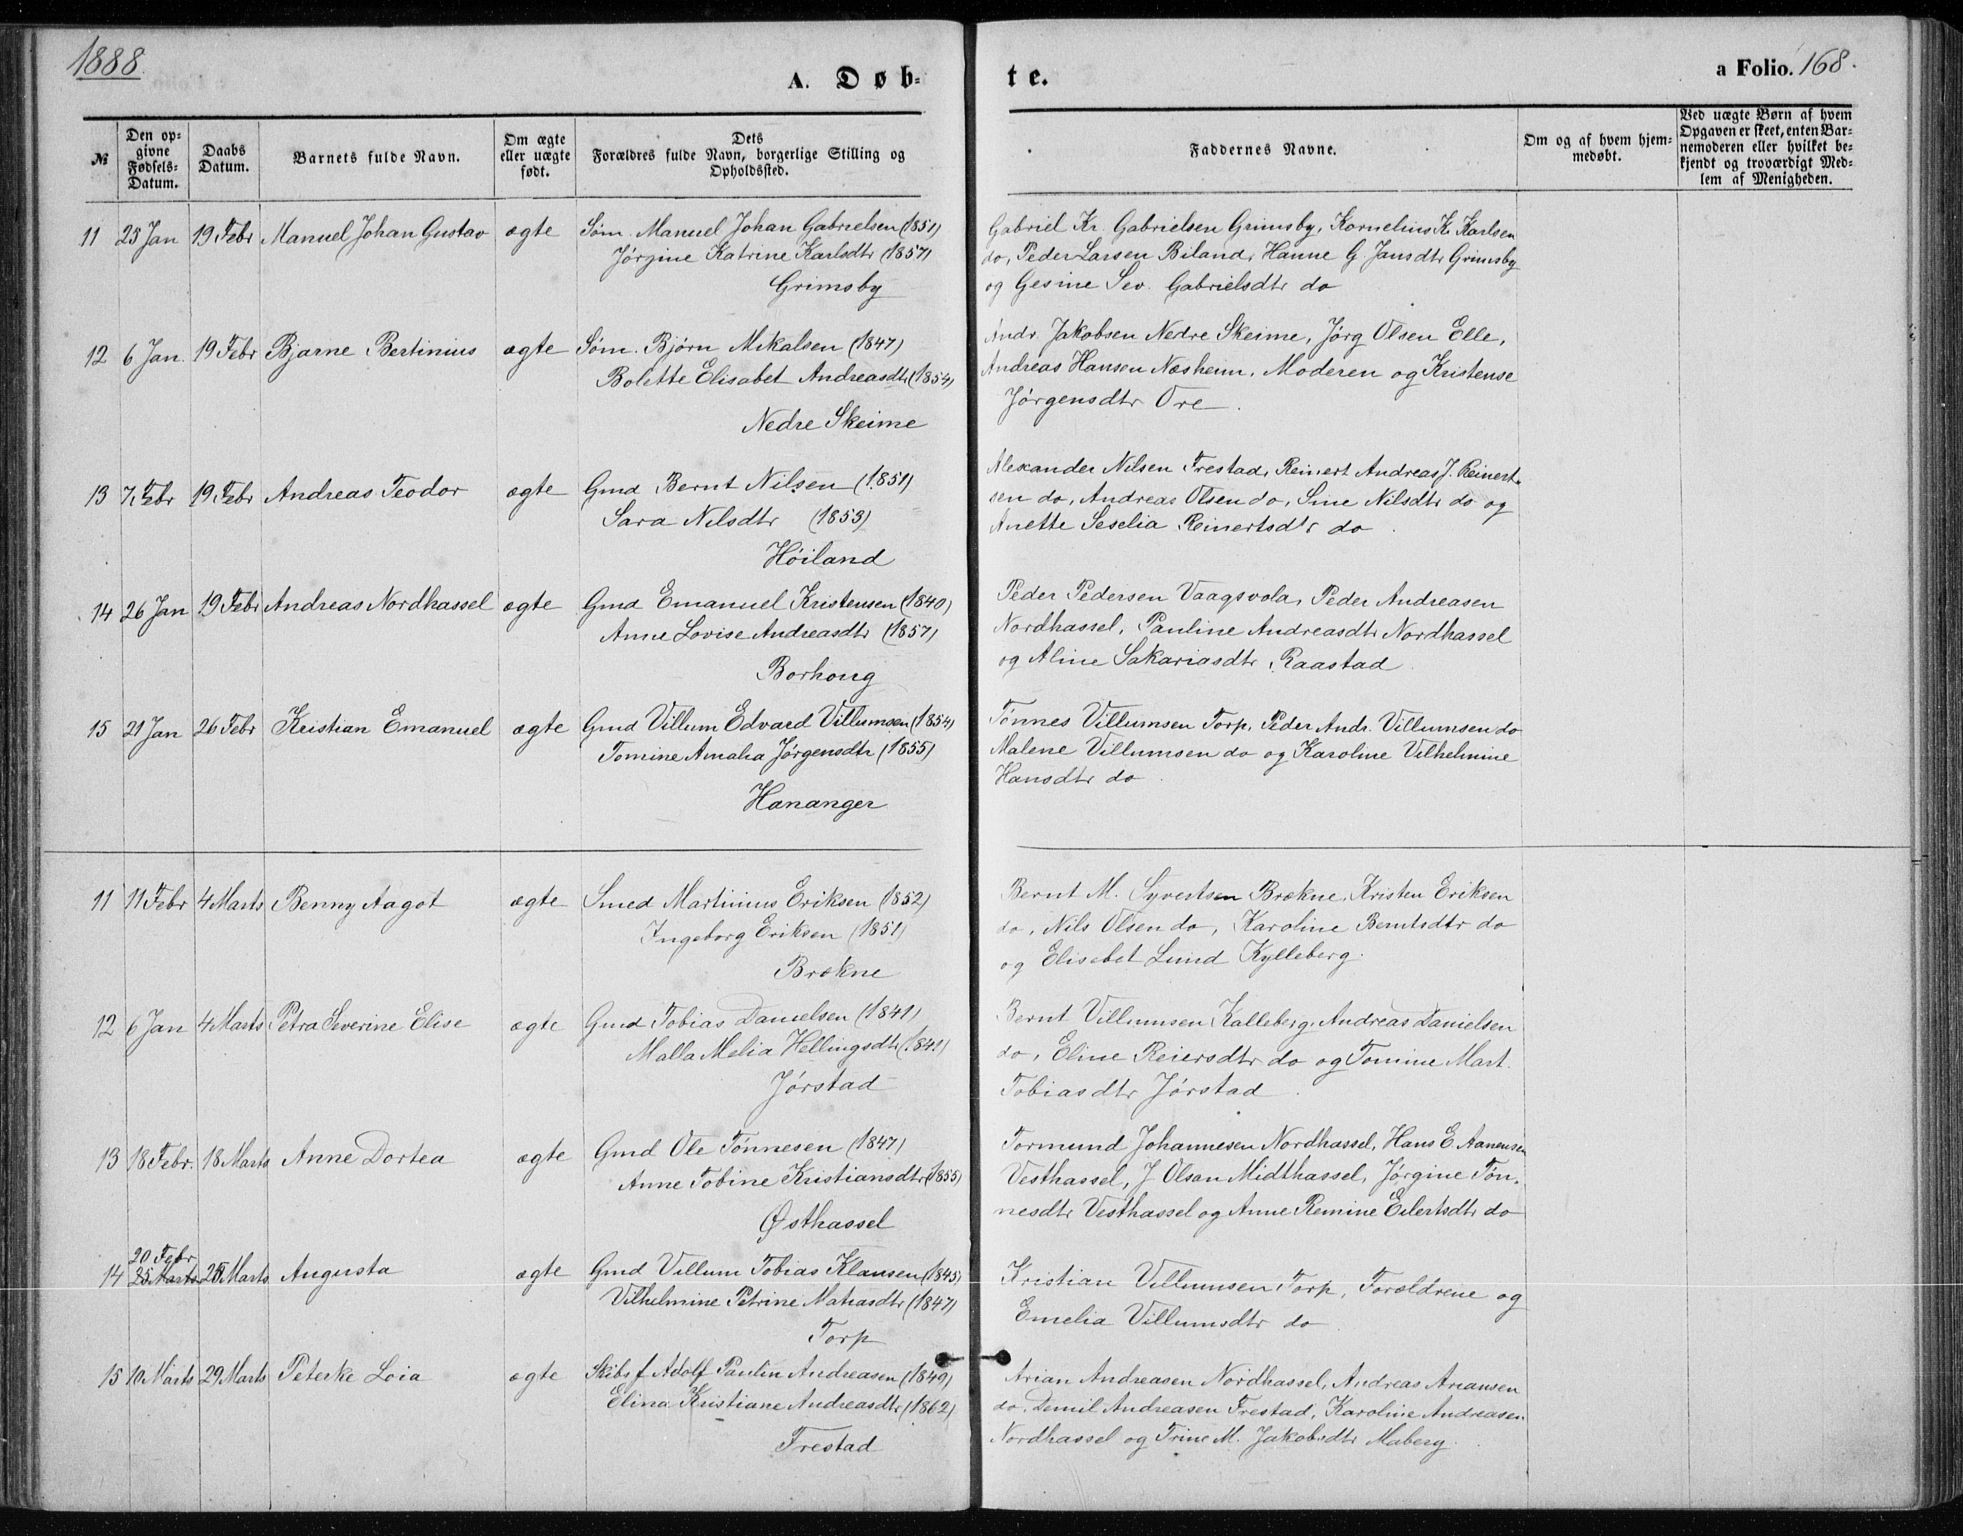 1888.
A. Døb-
te.
a Folio. 168.
№
Den op-
givne
Fødsels-
Datum.
Daabs
Datum.
Barnets fulde Navn.
Om ægte
eller uægte
født.
Dets
Forældres fulde Navn, borgerlige Stilling og
Opholdssted.
Faddernes Navne.
Om og af hvem hjem-
medøbt.
Ved uægte Børn af hvem
Opgaven er skeet, enten Bar-
nemoderen eller hvilket be-
kjendt og troværdigt Med-
lem af Menigheden.
11 25 Jan 19 Febr Manuel Johan Gustav ægte Søm. Manuel Johan Gabrielsen (1851)
Jørgine Katrine Karlsdtr (1857)
Grimsby
Gabriel Kr. Gabrielsen Grimsby, Kornelius K. Karlsen
do, Peder Larsen Biland, Hanne G Jansdtr Grimsby
og Gesine Sev. Gabrielsdtr do
12 6 Jan 19 Febr Bjarne Bertinius ægte Søm. Bjørn Mikalsen (1847)
Bolette Elisabet Andreasdtr (1854)
Nedre Skeime
Andr. Jakobsen Nedre Skeime, Jørg Olsen Elle,
Andreas Hansen Næsheim, Moderen og Kristense
Jørgensdtr Ore.
13 7 Febr 19 Febr Andreas Teodor ægte Gmd Bernt Nilsen (1851)
Sara Nilsdtr (1853)
Høiland
Alexander Nilsen Frestad, Reinert Andreas J. Reinert-
sen do, Andreas Olsen do, Sine Nilsdtr do og
Anette Seselia Reinertsdtr do.
14 26 Jan 19 Febr Andreas Nordhassel ægte Gmd Emanuel Kristensen (1840)
Anne Lovise Andreasdtr (1857)
Borhoug
Peder Pedersen Vaagsvola, Peder Andreasen
Nordhassel, Pauline Andreasdtr Nordhassel
og Aline Sakariasdtr Raastad.
15 21 Jan 26 Febr Kristian Emanuel ægte Gmd Villum Edvard Villumsen (1854)
Tomine Amalia Jørgensdtr (1855)
Hananger
Tønnes Villumsen Torp, Peder Andr. Villumsen do
Malene Villumsen do og Karoline Vilhelmine
Hansdtr do.
11 11 Febr 4 Marts Benny Aagot ægte Smed Martinius Eriksen (1852)
Ingeborg Eriksen (1851)
Brekne
Bernt M. Syvertsen Brekne, Kristen Eriksen
do, Nils Olsen do, Karoline Berntsdtr do
og Elisebet Lund Kylleberg.
12 6 Jan 4 Marts Petra Severine Elise ægte Gmd Tobias Danielsen (1841)
Malla Melia Hellingsdtr (1841)
Jørstad
Bernt Villumsen Kalleberg, Andreas Danielsen
do, Eline Reiersdtr do og Tomine Mart.
Tobiasdtr Jørstad.
13 18 Febr. 18 Marts Anne Dortea ægte Gmd Ole Tønnesen (1847)
Anne Tobine Kristiansdtr (1855)
Østhassel
Tormund Johannesen Nordhassel, Hans E. Aanensen
Vesthassel, J Olsen Midthassel, Jørgine Tøn-
nesdtr Vesthassel og Anne Remine Eilertsdtr do
20 Febr
14 25 Marts Marts Augusta ægte Gmd Villum Tobias Klausen (1845)
Vilhelmine Petrine Matiasdtr (1847)
Torp
Kristian Villumsen Torp, Forældrene og
Emelia Villumsdtr do
15 10 Marts 29 Marts Peterke Loia ægte Skibsf Adolf Paulin Andreasen (1849)
Elina Kristiane Andreasdtr (1862)
Frestad
Arian Andreasen Nordhassel, Andreas Ariansen
do, Andreasen Frestad, Karoline Andreasen
Nordhassel og Trine M. Jakobsdtr Maberg.